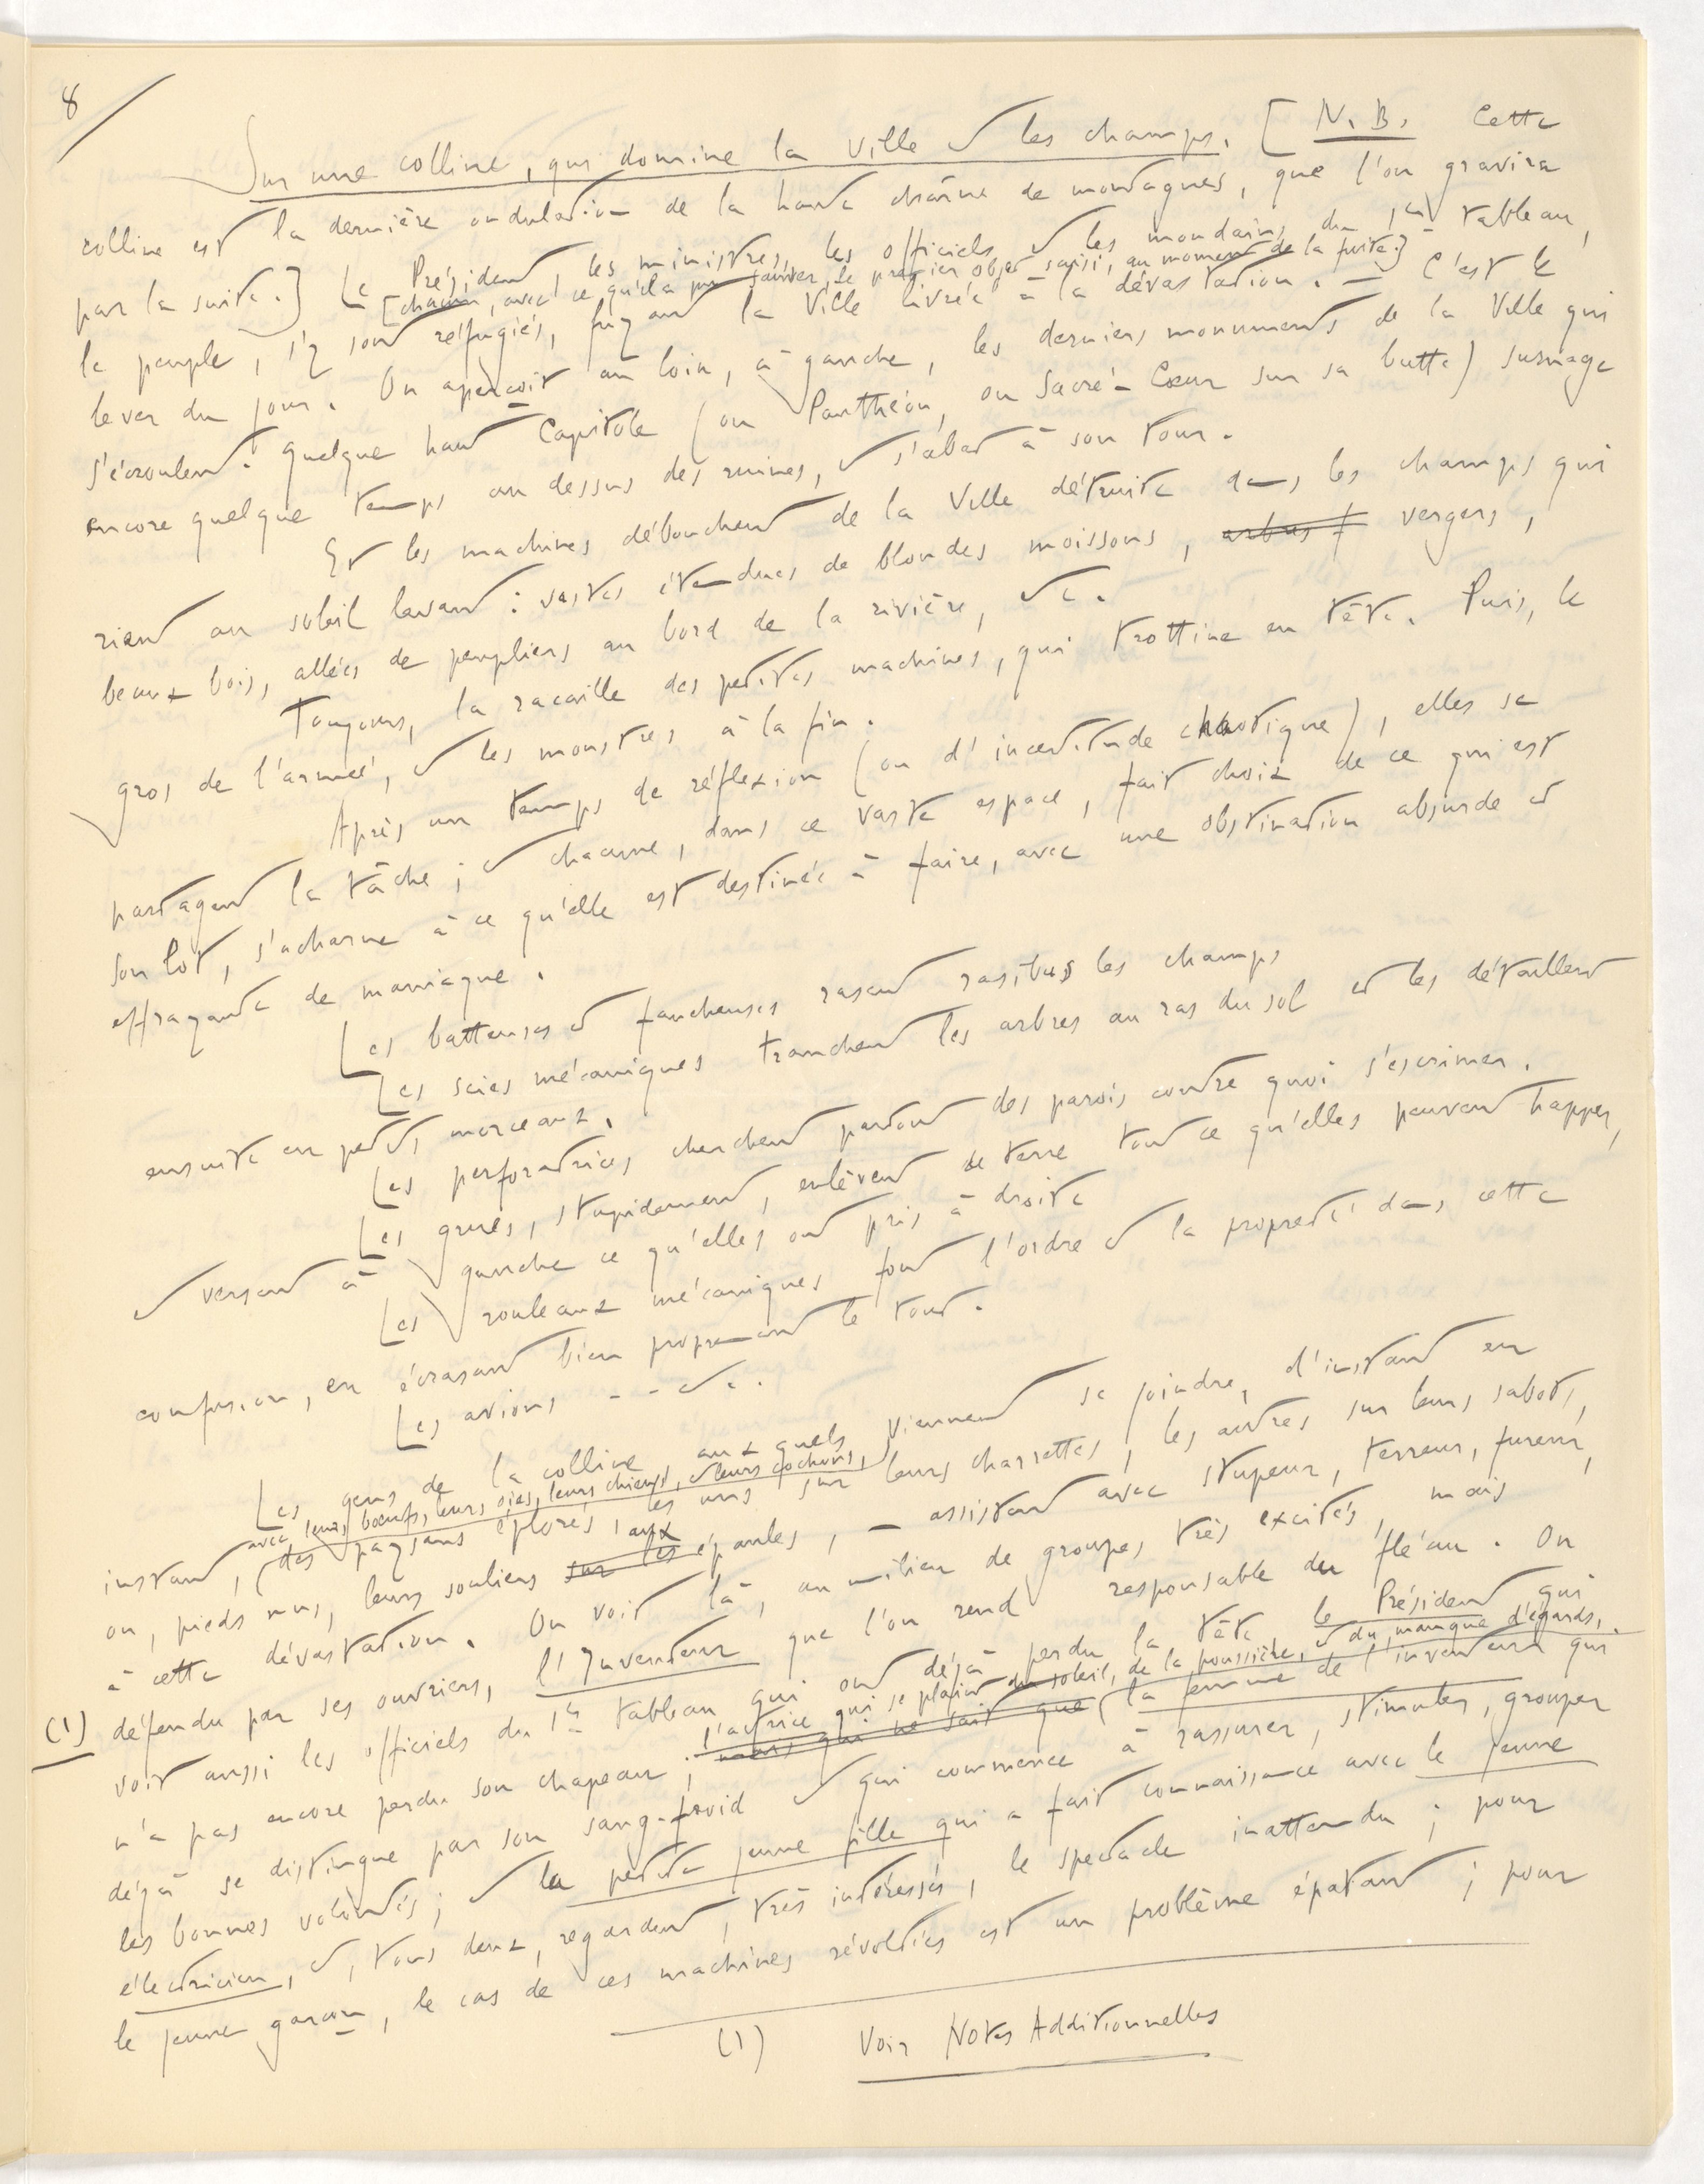 8
Sur une colline, qui domine la Ville et les champs. [N. B. Cette
colline est la dernière ondulation de la haute chaîne de montagnes, que l'on gravira
par la suite.] Le Président, les ministres, les officiels et les mondains du 1er tableau,
[chacun, avec ce qu'il a pu sauver, le premier objet saisi, au moment de la fuite.]
le peuple, s'y sont réfugiés, fuyant la Ville livrée à la dévastation. — C'est le
lever du jour. On aperçoit au loin, à gauche, les derniers monuments de la Ville qui
s'écroulent. Quelque haut Capitole (ou Panthéon, ou Sacré-Cœur sur sa butte) surnage
encore quelque temps au dessus des ruines, et s'abat à son tour.
Et les machines débouchent de la Ville détruite dans les champs qui
rient au soleil levant : vastes étendues de blondes moissons, arbres f vergers,
beaux bois, allées de peupliers au bord de la rivière, etc.
Toujours, la racaille des petites machines, qui trottine en tête. Puis, le
gros de l'armée, et les monstres à la fin.
Après un temps de réflexion (ou d'incertitude chaotique), elles se
partagent la tâche ; et chacune, dans ce vaste espace, fait choix de ce qui est
son lot, s'acharne à ce qu'elle est destinée à faire, avec une obstination absurde et
effrayante de maniaque.
Les batteuses et faucheuses rasent rasibus les champs
Les scies mécaniques tranchent les arbres au ras du sol et les détaillent
ensuite en petits morceaux.
Les perforatrices cherchent partout des parois contre quoi s'escrimer.
Les grues, stupidement, enlèvent de terre tout ce qu'elles peuvent happer,
et versent à gauche ce qu'elles ont pris à droite
Les rouleaux mécaniques font l'ordre et la propreté dans cette
confusion, en écrasant bien proprement le tout.
Les avions - - etc.
Les gens de la colline, auxquels viennent se joindre, d'instant en
avec leurs bœufs, leurs oies, leurs chiens, et leurs cochons,
instant, (des paysans éplorés, les uns sur leurs charrettes, les autres sur leurs sabots,
ou, pieds nus, leurs souliers sur les aux épaules, — assistent avec stupeur, terreur, fureur,
à cette dévastation. On voit là, au milieu de groupes très excités, mais
(1) défendu par ses ouvriers, l'Inventeur que l'on rend responsable du fléau. On
voit aussi les officiels du 1er tableau qui ont déjà perdu la tête le Président qui
n'a pas encore perdu son chapeau ; l'actrice qui se plaint du soleil, de la poussière, et du manque d'égards,
mais qui ne sait que (la femme de l'inventeur qui
déjà se distingue par son sang-froid et qui commence à rassurer, stimuler, grouper
les bonnes volontés ; et la petite jeune fille qui a fait connaissance avec le jeune
électricien, et, tous deux, regardent, très intéressés, le spectacle inattendu ; pour
le jeune garçon, le cas de ces machines révoltées est un problème épatant ; pour
(1) Voir Notes Additionnelles